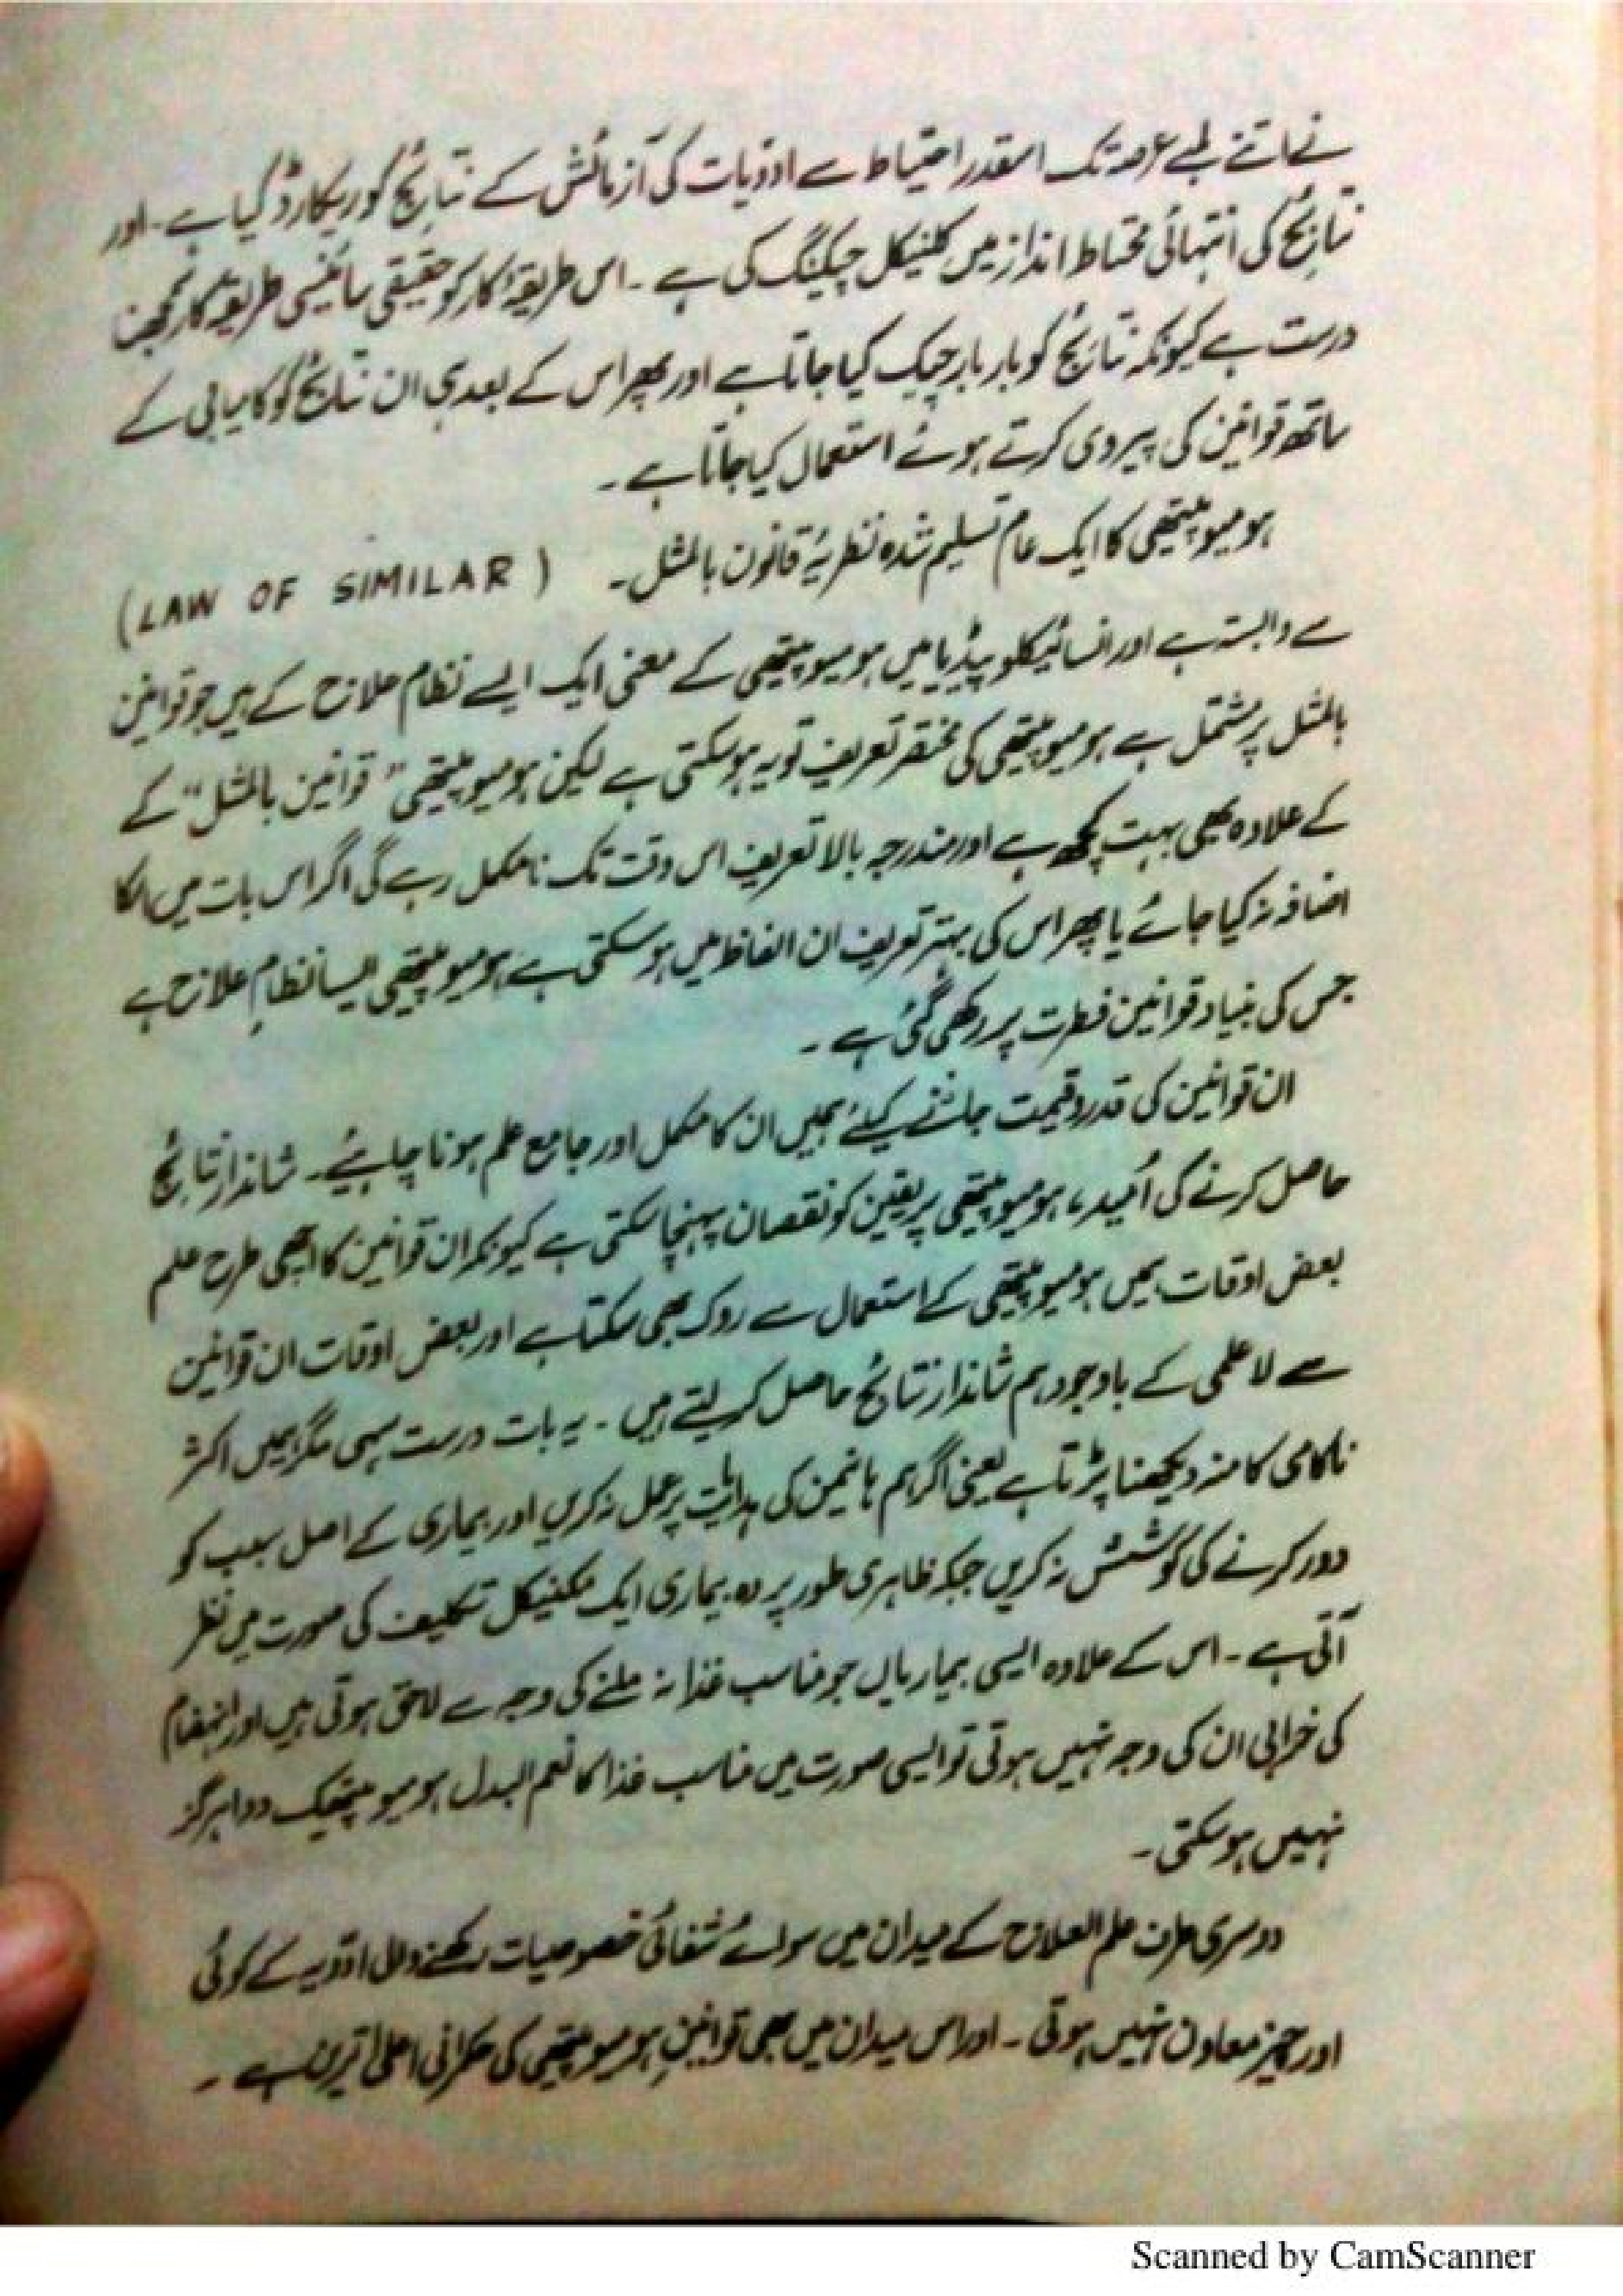 نے اتنے لمبے عرصہ تک اسقدر احتیاط سے ادویات کی آزمائش کے نتائج کو ریکارڈ کیا ہے۔ اور
نتائج کی انتہائی محتاط انداز میں کلنیکل چیکنگ کی ہے ۔ اس طریقۂ کار کو حقیقی سائنسی طریقۂ کار سمجھنا
درست ہے کیونکہ نتائج کو بار بار چیک کیا جاتا ہے اور پھر اس کے بعد ہی ان نتائج کو کامیابی کے
ساتھ قوانین کی پیروی کرتے ہوئے استعمال کیا جاتا ہے ۔
ہومیوپیتھی کا ایک عام تسلیم شدہ نظریۂ قانون بالمثل ۔ (LAW OF SIMILAR)
سے وابستہ ہے اور انسائیکلوپیڈیا میں ہومیوپیتھی کے معنی ایک ایسے نظام علاج کے ہیں جو قوانین
بالمثل پر مشتمل ہے ہومیوپیتھی کی مختصر تعریف تو یہ ہو سکتی ہے لیکن ہومیوپیتھی "قوانین بالمثل" کے
کے علاوہ بھی بہت کچھ ہے اور مندرجہ بالا تعریف اس وقت تک نامکمل رہے گی اگر اس بات میں اسکا
اضافہ نہ کیا جائے یا پھر اس کی بہتر تعریف ان الفاظ میں ہو سکتی ہے ہومیوپیتھی ایسا نظامِ علاج ہے
جس کی بنیاد قوانین فطرت پر رکھی گئی ہے ۔
ان قوانین کی قدر و قیمت جاننے کیلئے ہمیں ان کا مکمل اور جامع علم ہونا چاہئیے ۔ شاندار نتائج
حاصل کرنے کی اُمید، ہومیوپیتھی پر یقین کو نقصان پہنچا سکتی ہے کیونکہ ان قوانین کا اچھی طرح علم
بعض اوقات ہمیں ہومیوپیتھی کے استعمال سے روک بھی سکتا ہے اور بعض اوقات ان قوانین
سے لاعلمی کے باوجود ہم شاندار نتائج حاصل کر لیتے ہیں ۔ یہ بات درست سہی مگر ہمیں اکثر
ناکامی کا منہ دیکھنا پڑتا ہے یعنی اگر ہم ہانیمن کی ہدایت پر عمل نہ کریں اور بیماری کے اصل سبب کو
دور کرنے کی کوشش نہ کریں جبکہ ظاہری طور پر وہ بیماری ایک مکنیکل تکلیف کی صورت میں نظر
آتی ہے ۔ اس کے علاوہ ایسی بیماریاں جو مناسب غذا نہ ملنے کی وجہ سے لاحق ہوتی ہیں اور انہضام
کی خرابی ان کی وجہ نہیں ہوتی تو ایسی صورت میں مناسب غذا کا نعم البدل ہومیوپیتھک دوا ہرگز
نہیں ہو سکتی ۔
دوسری طرف علم العلاج کے میدان میں سوائے شفائی خصوصیات رکھنے والی ادویہ کے کوئی
اور چیز معاون نہیں ہوتی ۔ اور اس میدان میں بھی قوانینِ ہومیوپیتھی کی حکمرانی اعلیٰ ترین ہے ۔
Scanned by CamScanner